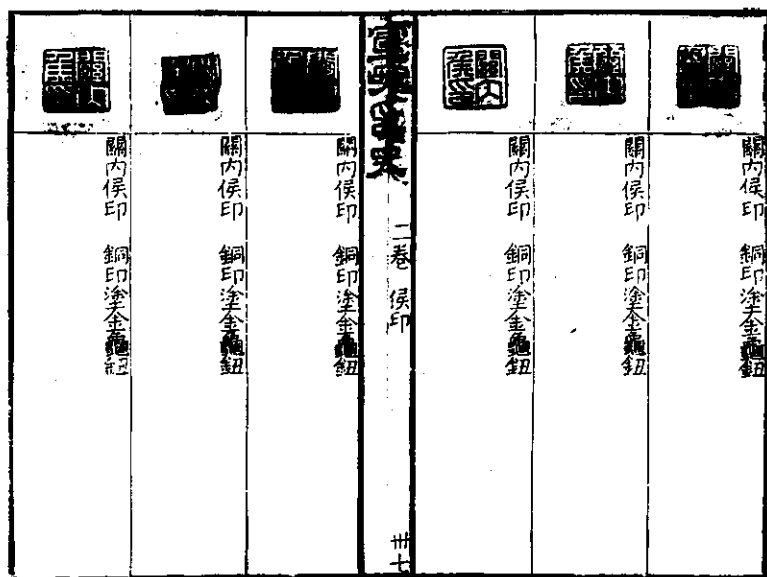 關内侯印 銅印塗金龜鈕
關内侯印
關内侯印 銅印塗金龜鈕
關内侯印
關内侯印 銅印塗金龜鈕
二卷 侯印
卅七
關内侯印 銅印塗金龜鈕
關内侯印 銅印塗金龜鈕
關内侯印
關内侯印 銅印塗金龜鈕